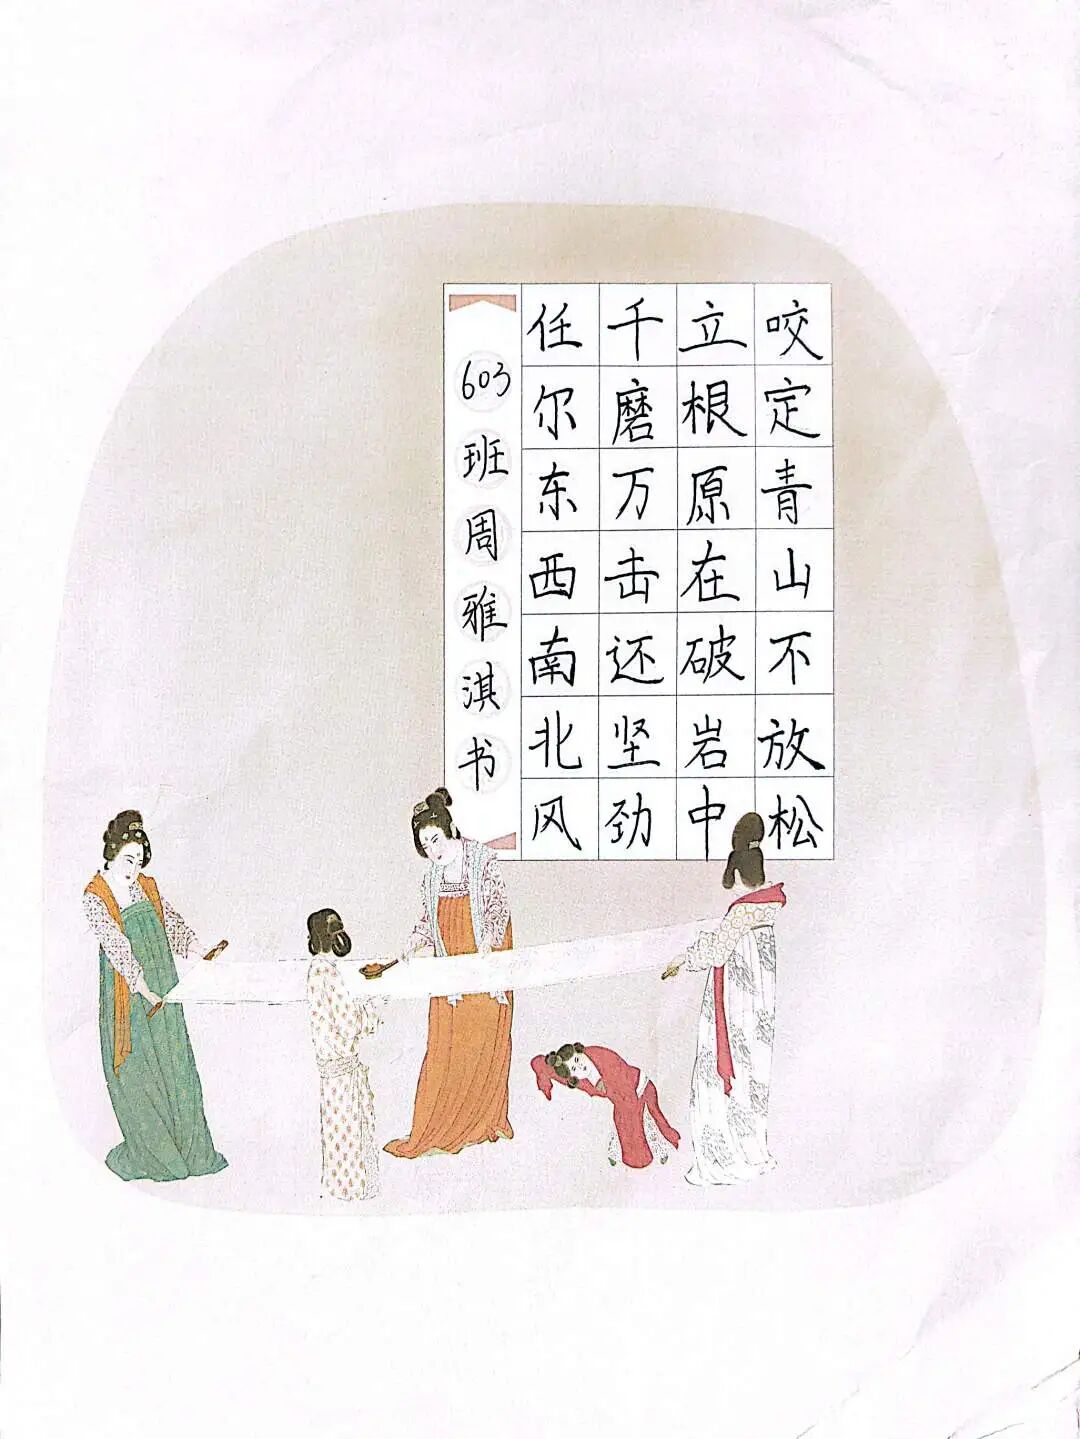 咬定青山不放松
立根原在破岩中
千磨万击还坚劲
任尔东西南北风
603班周雅淇书